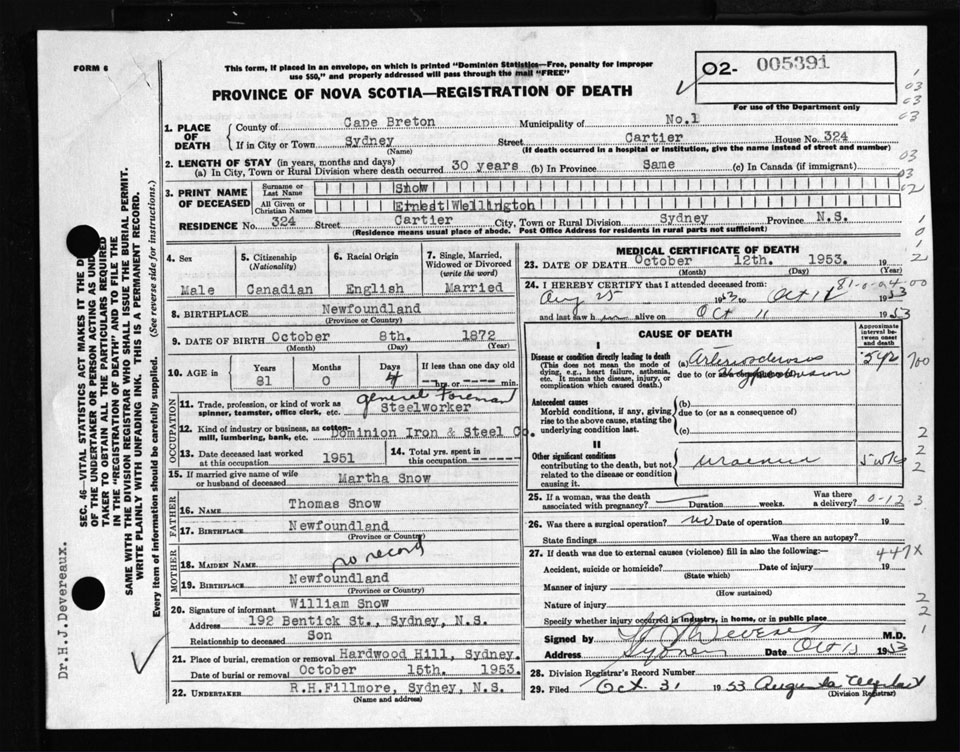 FORM 6
This form, if placed in an envelope, on which is printed "Dominion Statistics—Free, penalty for improper
use $50," and properly addressed will pass through the mail "FREE"
O2- 005391
For use of the Department only
PROVINCE OF NOVA SCOTIA—REGISTRATION OF DEATH
1. PLACE OF DEATH
County of Cape Breton Municipality of No.1
If in City or Town Sydney Street Cartier House No. 324
(Name) (If death occurred in a hospital or institution, give the name instead of street and number)
2. LENGTH OF STAY (in years, months and days)
(a) In City, Town or Rural Division where death occurred 30 years (b) In Province Same (c) In Canada (if immigrant)
3. PRINT NAME OF DECEASED
Surname or Last Name Snow
All Given or Christian Names Ernest Wellington
RESIDENCE No. 324 Street Cartier City, Town or Rural Division Sydney Province N.S.
(Residence means usual place of abode. Post Office Address for residents in rural parts not sufficient)
4. Sex
Male
5. Citizenship
(Nationality)
Canadian
6. Racial Origin
English
7. Single, Married,
Widowed or Divorced
(write the word)
Married
8. BIRTHPLACE Newfoundland
(Province or Country)
9. DATE OF BIRTH October 8th. 1872
(Month) (Day) (Year)
10. AGE in
Years Months Days If less than one day old
81 0 4 --- hrs. or --- min.
OCCUPATION
11. Trade, profession, or kind of work as
spinner, teamster, office clerk, etc. general foreman
Steelworker
12. Kind of industry or business, as cotton-
mill, lumbering, bank, etc. Dominion Iron & Steel Co.
13. Date deceased last worked
at this occupation 1951
14. Total yrs. spent in
this occupation
15. If married give name of wife
or husband of deceased Martha Snow
FATHER
16. NAME Thomas Snow
17. BIRTHPLACE Newfoundland
(Province or Country)
MOTHER
18. MAIDEN NAME no record
19. BIRTHPLACE Newfoundland
(Province or Country)
20. Signature of informant William Snow
Address 192 Bentick St., Sydney, N.S.
Relationship to deceased Son
21. Place of burial, cremation or removal Hardwood Hill, Sydney.
Date of burial or removal October 15th. 1953.
22. UNDERTAKER R.H.Fillmore, Sydney, N.S.
(Name and address)
MEDICAL CERTIFICATE OF DEATH
23. DATE OF DEATH October 12th. 1953.
(Month) (Day) (Year)
24. I HEREBY CERTIFY that I attended deceased from
Aug 25 1953 to Oct 12 1953
and last saw him alive on Oct 11 1953
CAUSE OF DEATH
Approximate
interval be-
tween onset
and death
I
Disease or condition directly leading to death
(This does not mean the mode of
dying, e.g., heart failure, asthenia,
etc. It means the disease, injury, or
complication which caused death.)
(a) Arteriosclerosis
due to (or as Hypertension
Antecedent causes
Morbid conditions, if any, giving
rise to the above cause, stating the
underlying condition last.
(b)
due to (or as a consequence of)
(c)
II
Other significant conditions
contributing to the death, but not
related to the disease or condition
causing it.
uraemia 5 wks
25. If a woman, was the death
associated with pregnancy? Duration weeks. Was there
a delivery?
26. Was there a surgical operation? no Date of operation 19
State findings Was there an autopsy?
27. If death was due to external causes (violence) fill in also the following:
447X
Accident, suicide or homicide? Date 19
(State which)
Manner of injury
(How sustained)
Nature of injury
Specify whether injury occurred in industry, in home, or in public place
Signed by M.D.
Address Sydney Date Oct 13 1953
28. Division Registrar's Record No.
29. Filed Oct. 31 1953 Augusta
(Division Registrar)
SEC. 46—VITAL STATISTICS ACT MAKES IT THE
OF THE UNDERTAKER OR PERSON ACTING AS
TAKER TO OBTAIN ALL THE PARTICULARS REQUIRED
IN THE "REGISTRATION OF DEATH" AND TO FILE THE
SAME WITH THE DIVISION REGISTRAR WHO SHALL ISSUE THE BURIAL PERMIT.
WRITE PLAINLY WITH UNFADING INK. THIS IS A PERMANENT RECORD.
Every item of information should be carefully supplied. (See reverse side for instructions.)
Dr.H.J.Devereaux.